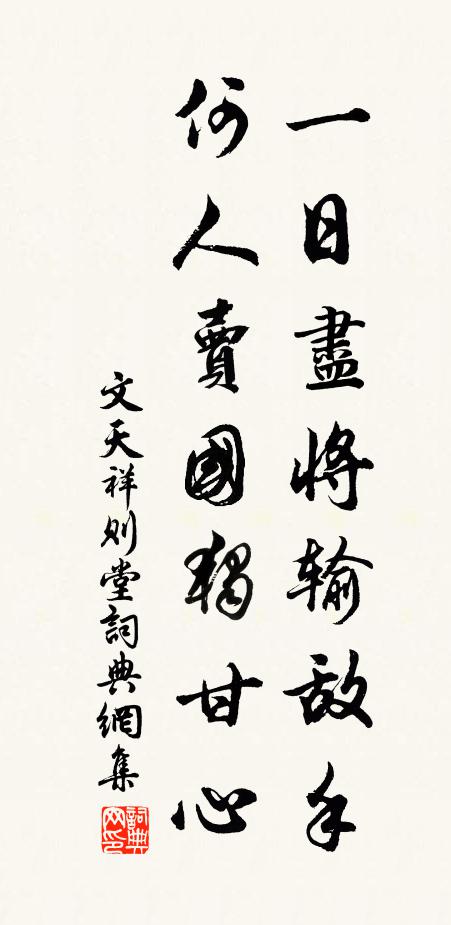 一日盡將輸敵手
何人賣國獨甘心
文天祥則堂詞典網集
詞典網印